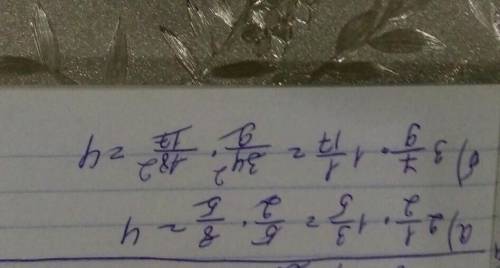 а) 2 1/2 · 1 3/5 = 5/2 · 8/5 = 4
б) 3 7/9 · 1 1/17 = 34 2/9 · 18 2/17 = 4